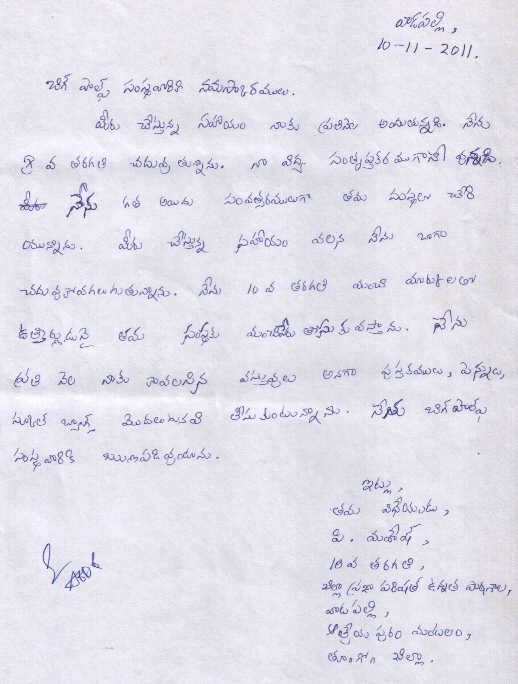 వాడపల్లి,
10-11-2011.
బిగ్ హెల్ప్ సంస్థవారికి నమస్కారములు.
మీరు చేస్తున్న సహాయం నాకు ప్రతినెల అందుతున్నది. నేను
వ తరగతి చదువుతున్నాను. నా విద్య సంతృప్తికరముగానే ఉన్నది.
నేను గత అయిదు సంవత్సరములుగా తమ సంస్థలో చేరి
యున్నాను. మీరు చేస్తున్న సహాయం వలన నేను బాగా
చదువుకోవగలుగుతున్నాను. నేను 10 వ తరగతి మంచి మార్కులతో
ఉత్తీర్ణుడునై తమ సంస్థకు మంచిపేరు తీసుకువస్తాను. నేను
ప్రతి నెల నాకు కావలసిన వస్తువులు అనగా పుస్తకములు, పెన్నులు,
స్కూల్ బ్యాగ్స్ మొదలగునవి తీసుకుంటున్నాను. నేను బిగ్ హెల్ప్
సంస్థవారికి ఋణపడివుంటాను.
ఇట్లు,
తమ విధేయుడు,
పి. మహేష్,
10వ తరగతి,
జిల్లా ప్రజా పరిషత్ ఉన్నత పాఠశాల,
వాడపల్లి,
ఆత్రేయపురం మండలం,
తూ.గో. జిల్లా.